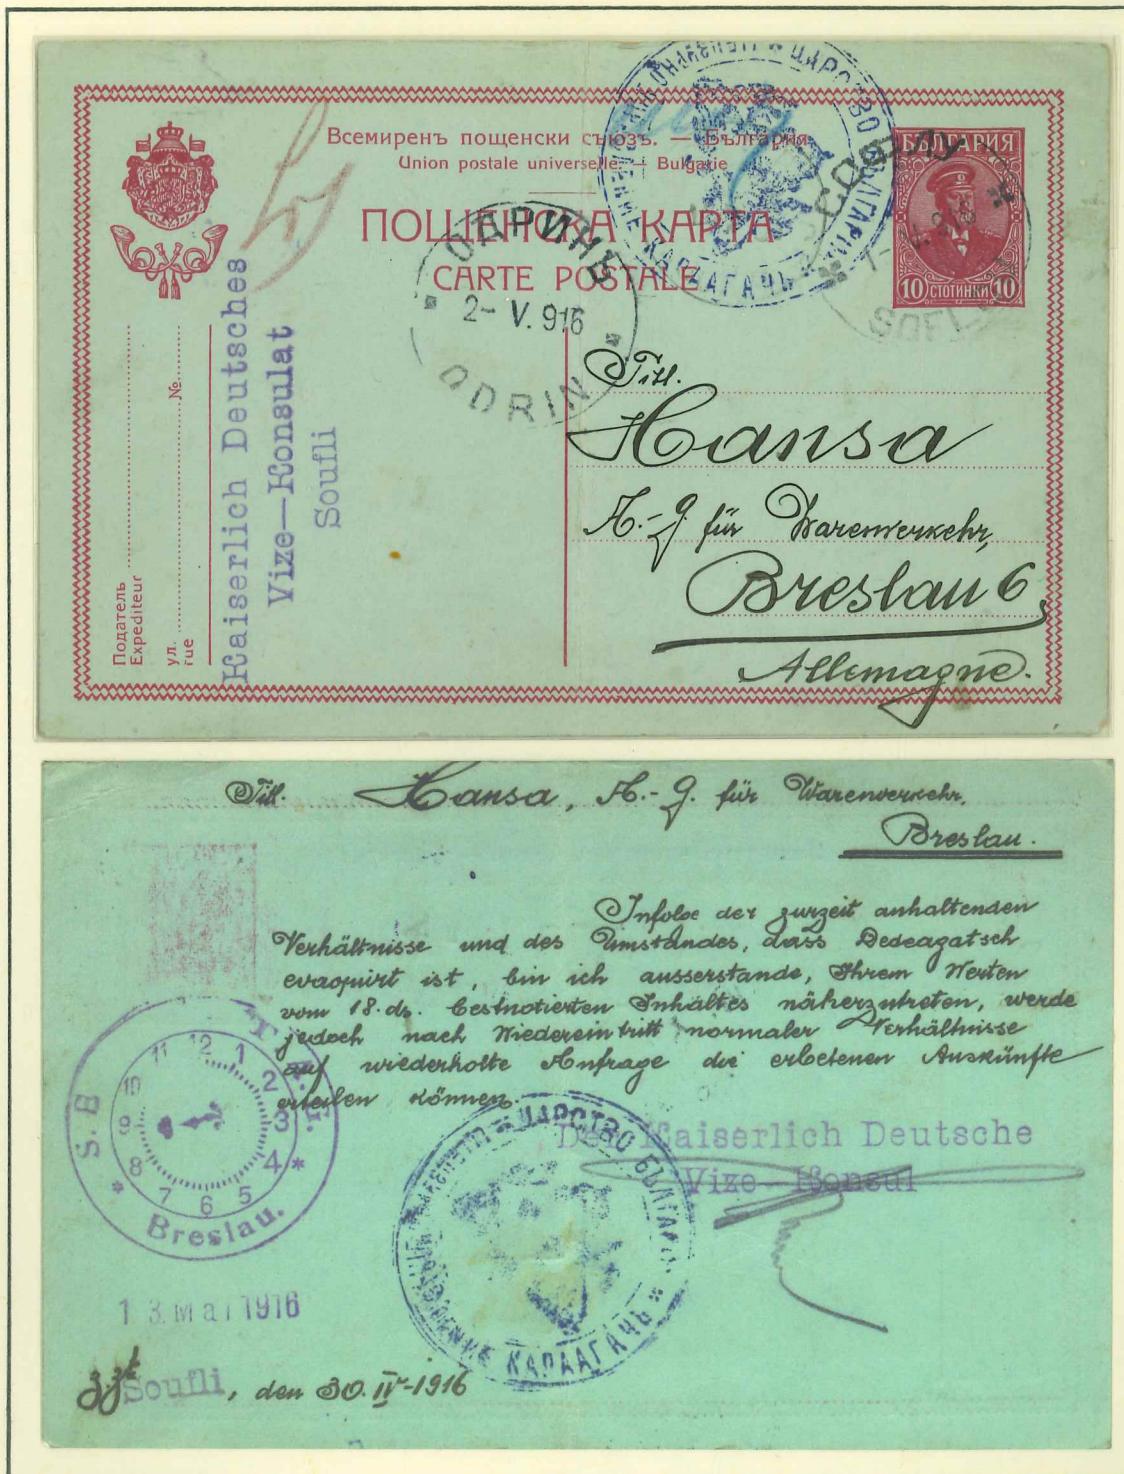 Всемиренъ пощенски съюзъ. — България
Union postale universelle. — Bulgarie
ПОЩЕНСКА КАРТА
CARTE POSTALE
БЪЛГАРИЯ
10 СТОТИНКИ 10
ЦАРСТВО БЪЛГАРИЯ
КАРААГАЧЪ
ОДРИНЪ
2-V.916
ODRIN
СОФЛУ
SOFLU
Податель
Expéditeur
ул. № 
rue
Kaiserlich Deutsches
Vize-Konsulat
Soufli
Titl.
Hansa
A.-G. für Warenverkehr,
Breslau 6,
Allemagne.
Titl. Hansa, A.-G. für Warenverkehr,
Breslau.
Infolge der zurzeit anhaltenden
Verhältnisse und des Umstandes, dass Dedeagatsch
evaquirt ist, bin ich ausserstande, Ihrem Werten
vom 18. ds. bestnotierten Inhaltes näherzutreten, werde
jedoch nach Wiedereintritt normaler Verhältnisse
auf wiederholte Anfrage die erbetenen Auskünfte
erteilen können.
Der Kaiserlich Deutsche
Vize-Konsul
S. B
12 1 2 3 4 5 6 7 8 9 10 11
Breslau.
ЦАРСТВО БЪЛГАРИЯ
КАРААГАЧЪ
13. Mai 1916
Soufli, den 30. IV-1916